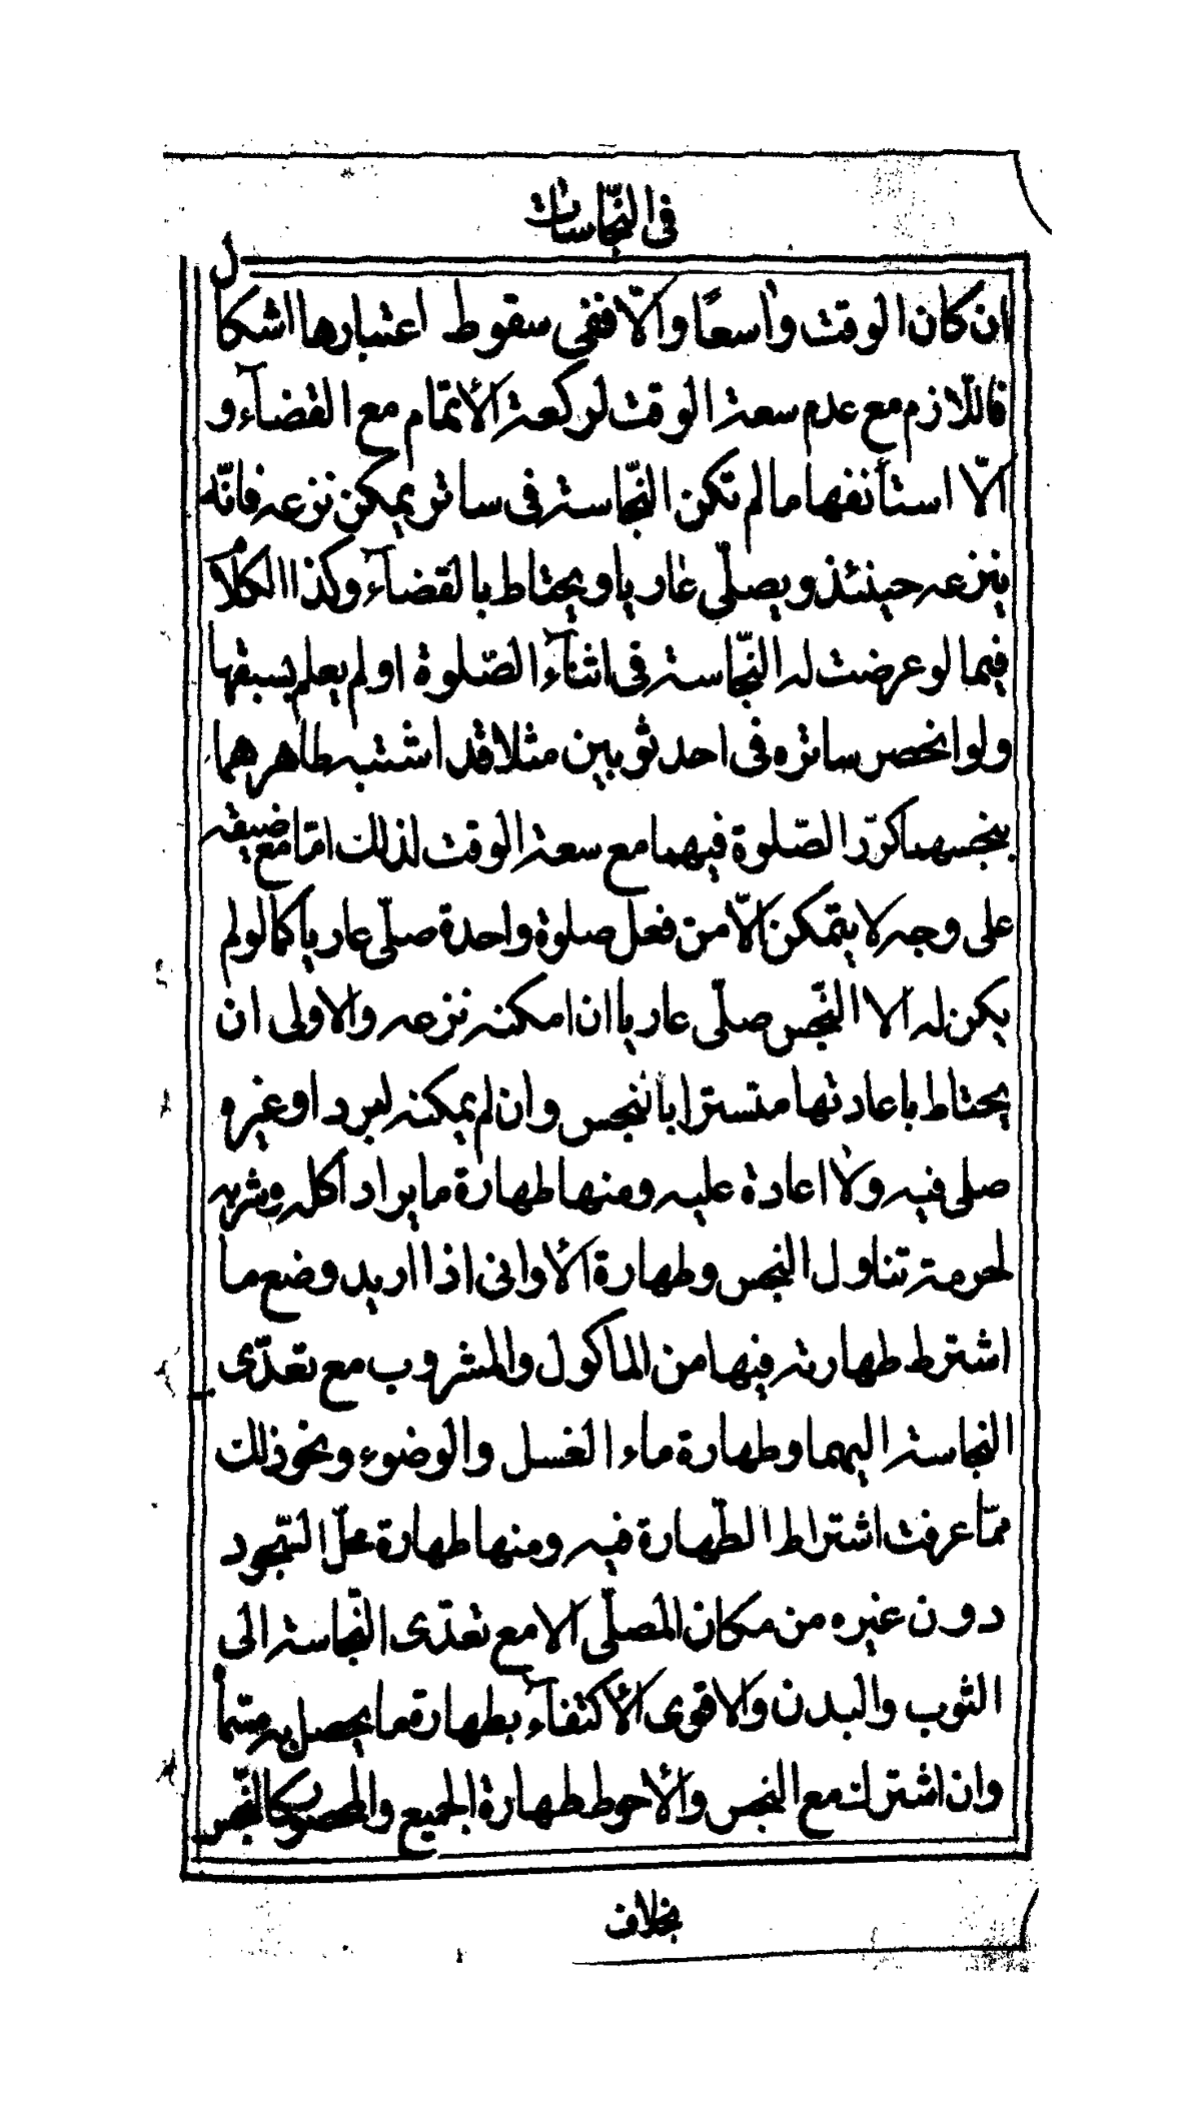 فى النّجاسات
ان كان الوقت واسعًا والّا ففى سقوط اعتبارها اشكال
فاللّازم مع عدم سعة الوقت لركعة الأتمّام مع القضآء و
الّا استأنفها ما لم تكن النّجاسة فى ساتر يمكن نزعه فانّه
ينزعه حينئذ ويصلّى عاريا ويحتاط بالقضآء وكذا الكلام
فيما لو عرضت له النّجاسة فى اثنآء الصّلوة او لم يعلم بسبقها
ولو انحصر ساتره فى احد ثوبين مثلا قد اشتبه طاهرهما
بنجسهما كرّر الصّلوة فيهما مع سعة الوقت لذلك امّا مع ضيقه
على وجه لا يتمكن الّا من فعل صلوة واحدة صلّى عاريا كما لو لم
يكن له الا النّجس صلّى عاريا ان امكنه نزعه والاولى ان
يحتاط باعادتها متسترا بالنجس وان لم يمكنه لبرد او غيره
صلى فيه ولا اعادة عليه ومنها طهارة ما يراد اكله وشربه
لحرمة تناول النجس وطهارة الأوانى اذا اريد وضع ما
اشترط طهارته فيها من المأكول والمشروب مع تعدّى
النجاسة اليهما وطهارة ماء الغسل والوضوء ونحو ذلك
ممّا عرفت اشتراط الطّهارة فيه ومنها طهارة محلّ السّجود
دون غيره من مكان المصلّى الا مع تعدّى النّجاسة الى
الثوب والبدن والاقوى الأكتفآء بطهارة ما يحصل به مسّماه
وان اشترك مع النجس والأحوط طهارة الجميع والمحصور كالنّجس
بخلاف